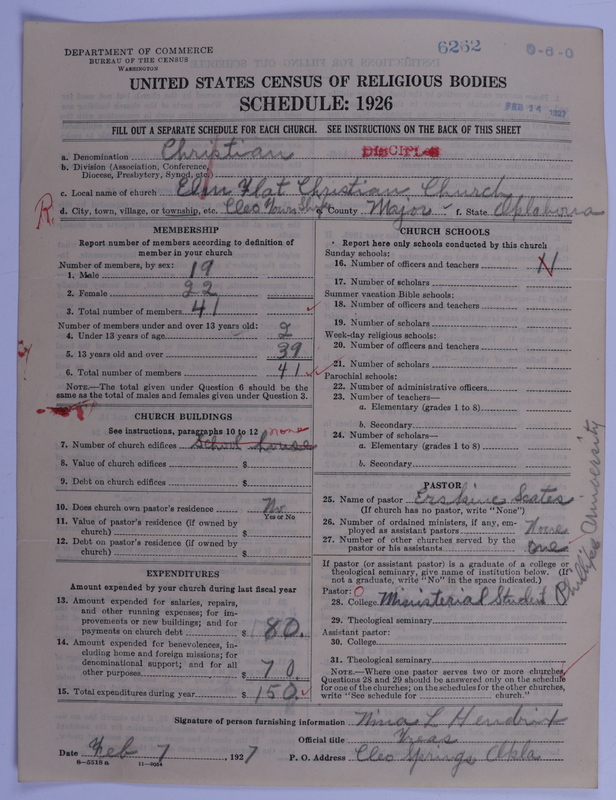 DEPARTMENT OF COMMERCE
BUREAU OF THE CENSUS
WASHINGTON
6262
0-6-0
UNITED STATES CENSUS OF RELIGIOUS BODIES
SCHEDULE: 1926
FEB 14 1927
FILL OUT A SEPARATE SCHEDULE FOR EACH CHURCH. SEE INSTRUCTIONS ON THE BACK OF THIS SHEET
a. Denomination Christian DISCIPLES
b. Division (Association, Conference,
Diocese, Presbytery, Synod, etc.)
c. Local name of church Elm Flat Christian Church
R. d. City, town, village, or township, etc. Cleo Township e. County Major f. State Oklahoma
MEMBERSHIP
Report number of members according to definition of
member in your church
Number of members, by sex:
1. Male 19
2. Female 22
3. Total number of members 41
Number of members under and over 13 years old:
4. Under 13 years of age 2
5. 13 years old and over 39
6. Total number of members 41
NOTE.—The total given under Question 6 should be the
same as the total of males and females given under Question 3.
CHURCH BUILDINGS
See instructions, paragraphs 10 to 12 none
7. Number of church edifices School house
8. Value of church edifices $
9. Debt on church edifices $
10. Does church own pastor's residence? No
Yes or No
11. Value of pastor's residence (if owned by
church) $
12. Debt on pastor's residence (if owned by
church) $
EXPENDITURES
Amount expended by church during last fiscal year
13. Amount expended for salaries, repairs,
and other running expenses; for im-
provements or new buildings; and for
payments on church debt $ 80.
14. Amount expended for benevolences, in-
cluding home and foreign missions; for
denominational support; and for all
other purposes $ 70.
15. Total expenditures during year $ 150.
CHURCH SCHOOLS
Report here only schools conducted by this church
Sunday schools:
16. Number of officers and teachers N
17. Number of scholars
Summer vacation Bible schools:
18. Number of officers and teachers
19. Number of scholars
Week-day religious schools:
20. Number of officers and teachers
21. Number of scholars
Parochial schools:
22. Number of administrative officers
23. Number of teachers—
a. Elementary (grades 1 to 8)
b. Secondary
24. Number of scholars—
a. Elementary (grades 1 to 8)
b. Secondary
PASTOR
25. Name of pastor Erskine Scates
(If church has no pastor, write "None")
26. Number of ordained ministers, if any, em-
ployed as assistant pastors None
27. Number of other churches served by the
pastor or his assistants one
If pastor (or assistant pastor) is a graduate of a college or
theological seminary, give name of institution below. (If
not a graduate, write "No" in the space indicated.)
Pastor: O
28. College Ministerial Student Phillips University
29. Theological seminary
Assistant pastor:
30. College
31. Theological seminary
NOTE.—Where one pastor serves two or more churches,
Questions 28 and 29 should be answered only on the schedule
for one of the churches; on the schedules for the other churches,
write "See schedule for church."
Signature of person furnishing information Nina L Hendrix
Official title Treas
Date Feb 7, 1927 P. O. Address Cleo Springs Okla
8-5518 a